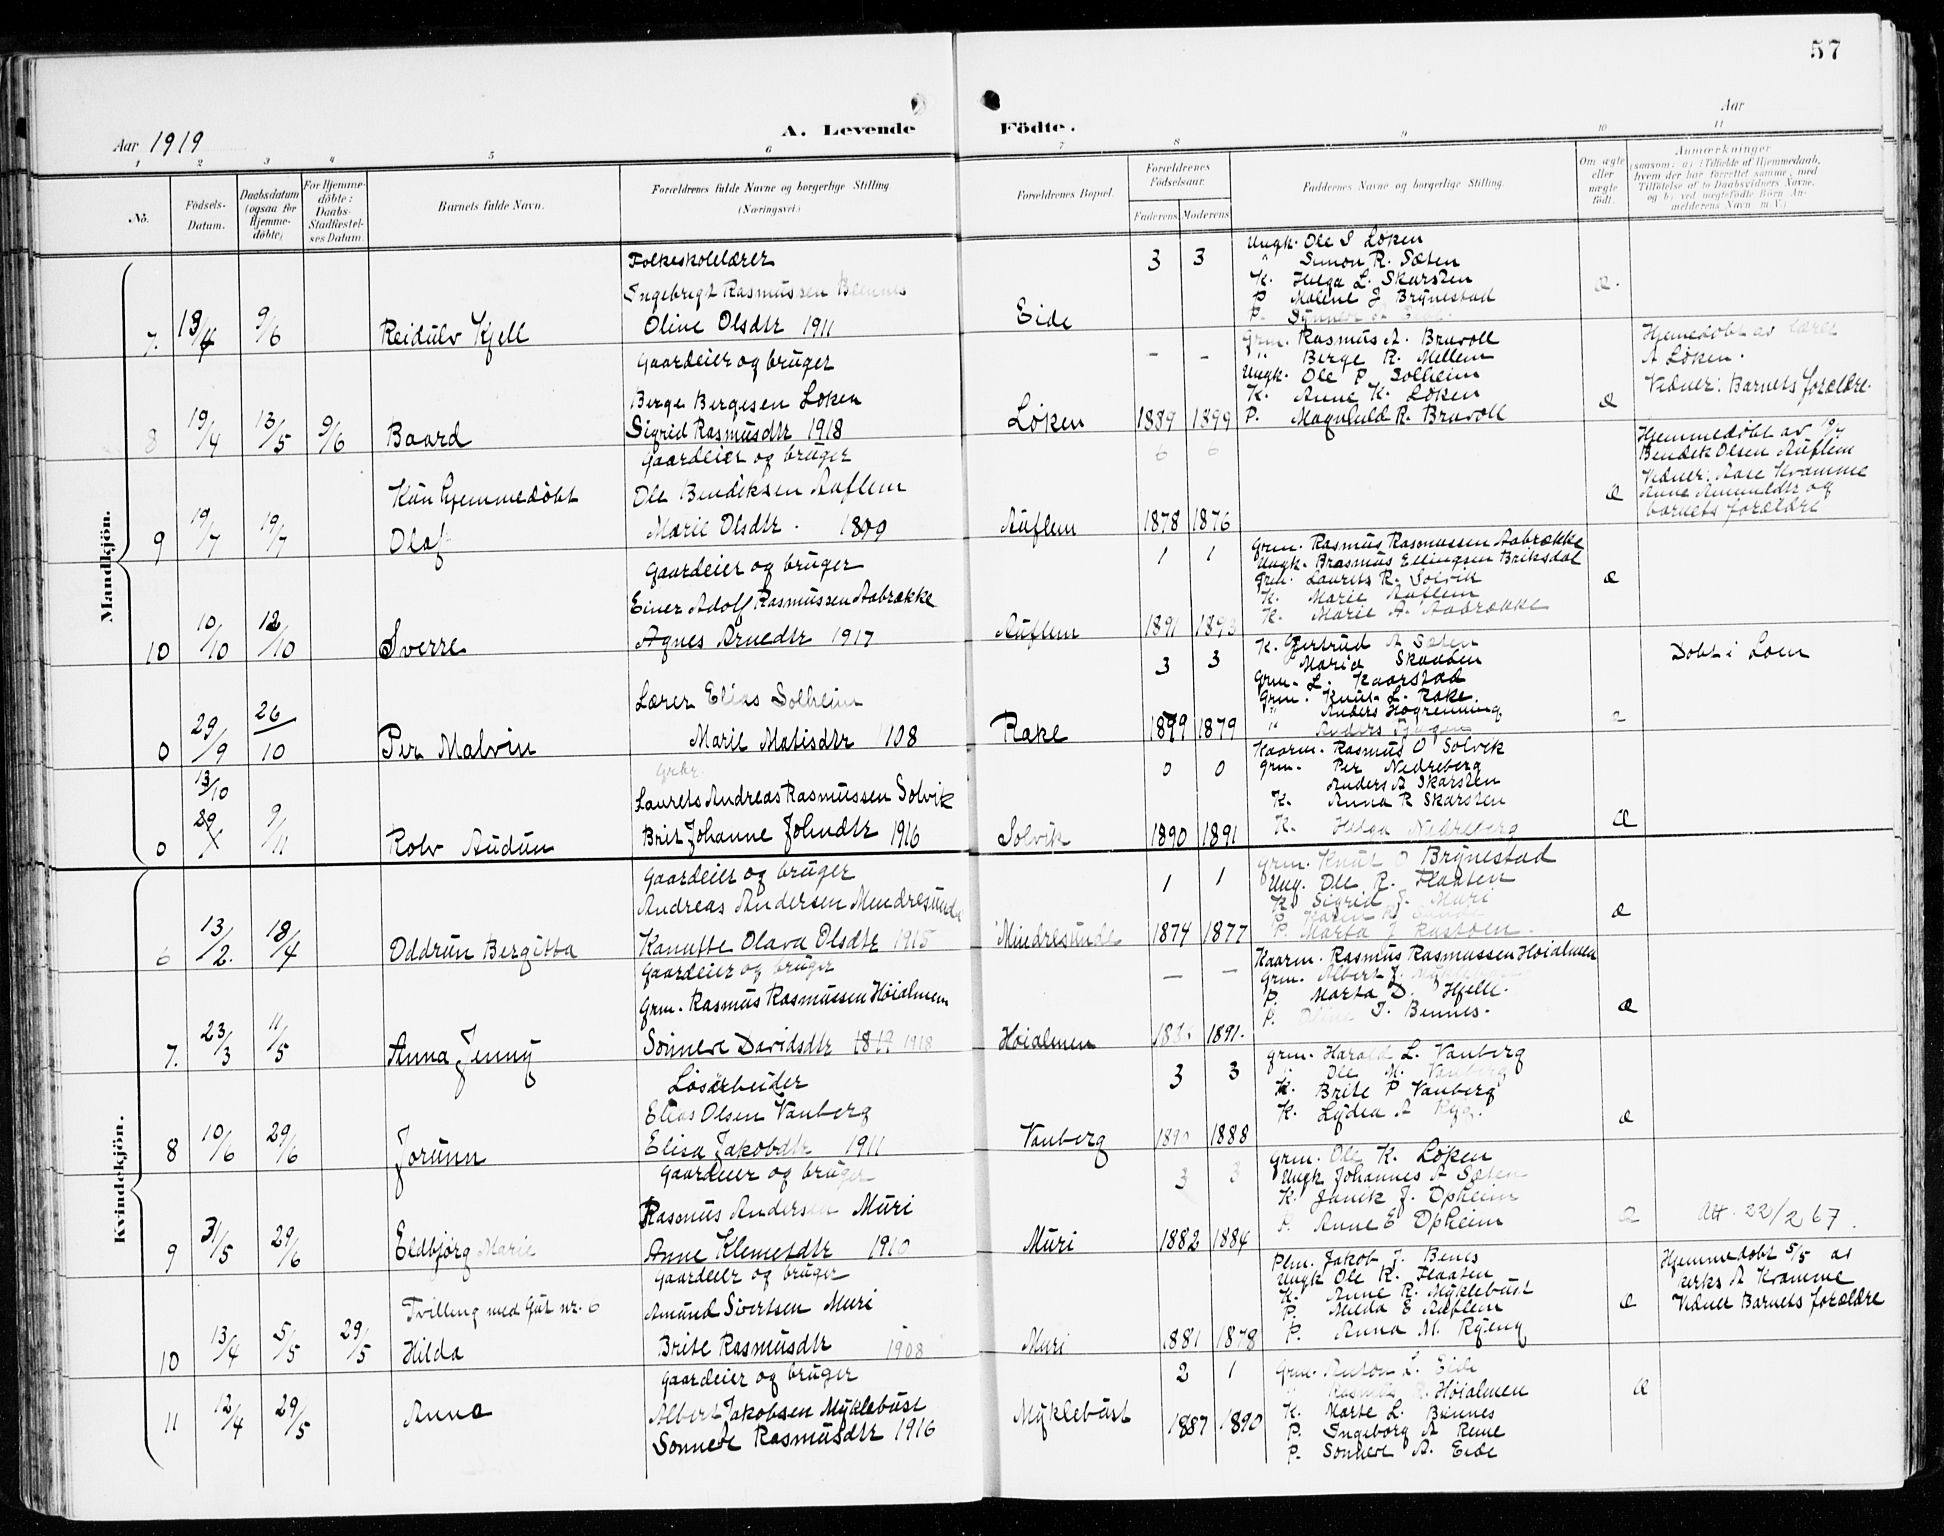 57
Aar 1919
A. Levende Födte.
Aar
1 2 3 4 5 6 7 8 9 10 11
No.
Födsels-Datum.
Daabsdatum (ogsaa for Hjemme-döbte)
For Hjemme-döbte: Daabs-Stadfestel-ses Datum.
Barnets fulde Navn.
Forældrenes fulde Navne og borgerlige Stilling (Næringsvei.)
Forældrenes Bopæl.
Forældrenes Födselsaar.
Faderens Moderens
Faddernes Navne og borgerlige Stilling
Om ægte eller uægte födt.
Anmærkninger
(saasom: a) i Tilfælde af Hjemmedaab,
hvem der har forrettet samme, med
Tilföielse af to Daabsvidners Navne.
og b) ved uægtefödte Börn An-
melderens Navn m. V.)
Mandkjön.
7. 13/4 9/6 Reidulv Kjell
Folkeskolelærer
Ingebrigt Rasmussen Bennes
Oline Olsdtr 1911
Eide
3 3
Ungk. Ole S Løken
" Simon R. Sæten
K. Helga L. Skarsten
P. Malene J Brynestad
P.
æ.
8 19/4 13/5 9/6 Baard
Gaardeier og bruger
Berge Bergesen Løken
Sigrid Rasmusdtr 1918
Løken
- -
1889 1899
Grm. Rasmus A. Bruvoll
" Berge R. Mellem
Ungk. Ole P Solheim
K. Anne K. Løken
P. Magnhild R. Bruvoll
æ
Hjemedøbt av lærer
A Løken.
Vidner: Barnets forældre.
9 19/7 19/7 Kun hjemmedøbt
Olaf
Gaardeier og bruger
Ole Bendiksen Auflem
Marie Olsdtr. 1899
Auflem
6 6
1878 1876
æ
Hjemmedøbt av 19/7
Bendik Olsen Auflem
Vidner: Aase Kvamme
Anne Amundsdtr og
barnets forældre
10 10/10 12/10 Sverre
Gaardeier og bruger
Einer Adolf Rasmussen Aabrække
Agnes Arnedtr 1917
Auflem
1 1
1891 1893
Grm. Rasmus Rasmussen Aabrække
Ungk. Brasmus Ellingsen Briksdal
Grm. Laurits R. Solvik
K. Marie Auflem
K. Marie A. Aabrække
æ
0 29/9 26/10 Per Malvin
Lærer Elias Solheim
Marie Matisdtr 1908
Rake
3 3
1879 1879
K. Gjertrud A Sæten
" Maria Skaaden
Grm. L. Kaarstad
Grm. Knut L. Rake.
" Anders Hogrenning
" Anders
æ
Døbt i Loen
0 13/10 29/X 9/11 Rolv Audun
Grbr.
Laurits Andreas Rasmussen Solvik
Brit Johanne Johndtr 1916
Solvik
0 0
1890 1891
Kaarm. Rasmus O Solvik
Grm. Per Nedreberg
Anders A Skarsten
K. Anna R Skarsten
K. Helga Nedreberg
Æ
Kvindekjön.
6 13/2. 18/4 Oddrun Bergitta
Gaardeier og bruger
Andreas Andersen Mindresunde
Kanutte Olava Olsdtr 1915
Mindresunde
1 1
1874 1877
Grm. Knut O Brynestad
Ung. Ole R. Flaaten
K. Sigrid J. Muri
P. Karen R.
P. Marta J Rastøen.
æ
7. 23/3 11/5 Anna Jenny
Gaardeier og bruger
Grm. Rasmus Rasmussen Høialmen
Sønneve Davidsdtr 1918
Høialmen
- -
1891.
Kaarm. Rasmus Rasmussen Høialmen
Grm. Albert J. Myklebust
P. Marta D. Hjelle.
P. Oline I. Bennes.
æ
8 10/6 29/6 Jorunn
Løsarbeider
Elias Olsen Vanberg
Elisa Jakobdtr 1911
Vanberg
3 3
1890 1888
Grm. Harald L. Vanberg
" Ole M. Vanberg
K. Brite P Vanberg
K. Lydia A Ryg.
æ
9 31/5 29/6 Eldbjørg Marie
Gaardeier og bruger
Rasmus Andersen Muri
Anne Klemetdtr 1910
Muri
3 3
1882 1884
Grm. Ole K. Løken
Ungk Johannes A Sæten
K. Janik J. Opheim
P. Anne E Opheim
æ
Att. 22/2 67.
10 13/4 5/5 29/5 Tvilling med Gut nr. 6
Hilda
Gaardeier og bruger
Amund Sivertsen Muri
Brite Rasmusdtr 1908
Muri
1881 1878
Plm. Jakob J. Benes
Ungk Ole R. Flaaten
K. Anne R. Myklebust
P. Alida E Auflem
P. Anna M. Ryeng
æ
Hjemmedøbt 5/5 av
kirks A Kvamme
Vidner Barnets forældre
11 12/4 29/5 Anna
Gaardeier og bruger
Albert Jakobsen Myklebust
Sønneve Rasmusdtr 1916
Myklebust
2 1
1887 1890
Grm. Anton L. Eide
" Rasmus R. Høialmen
K. Marte L. Bennes
P. Ingeborg A Rene
P. Sønneve A. Eide
æ